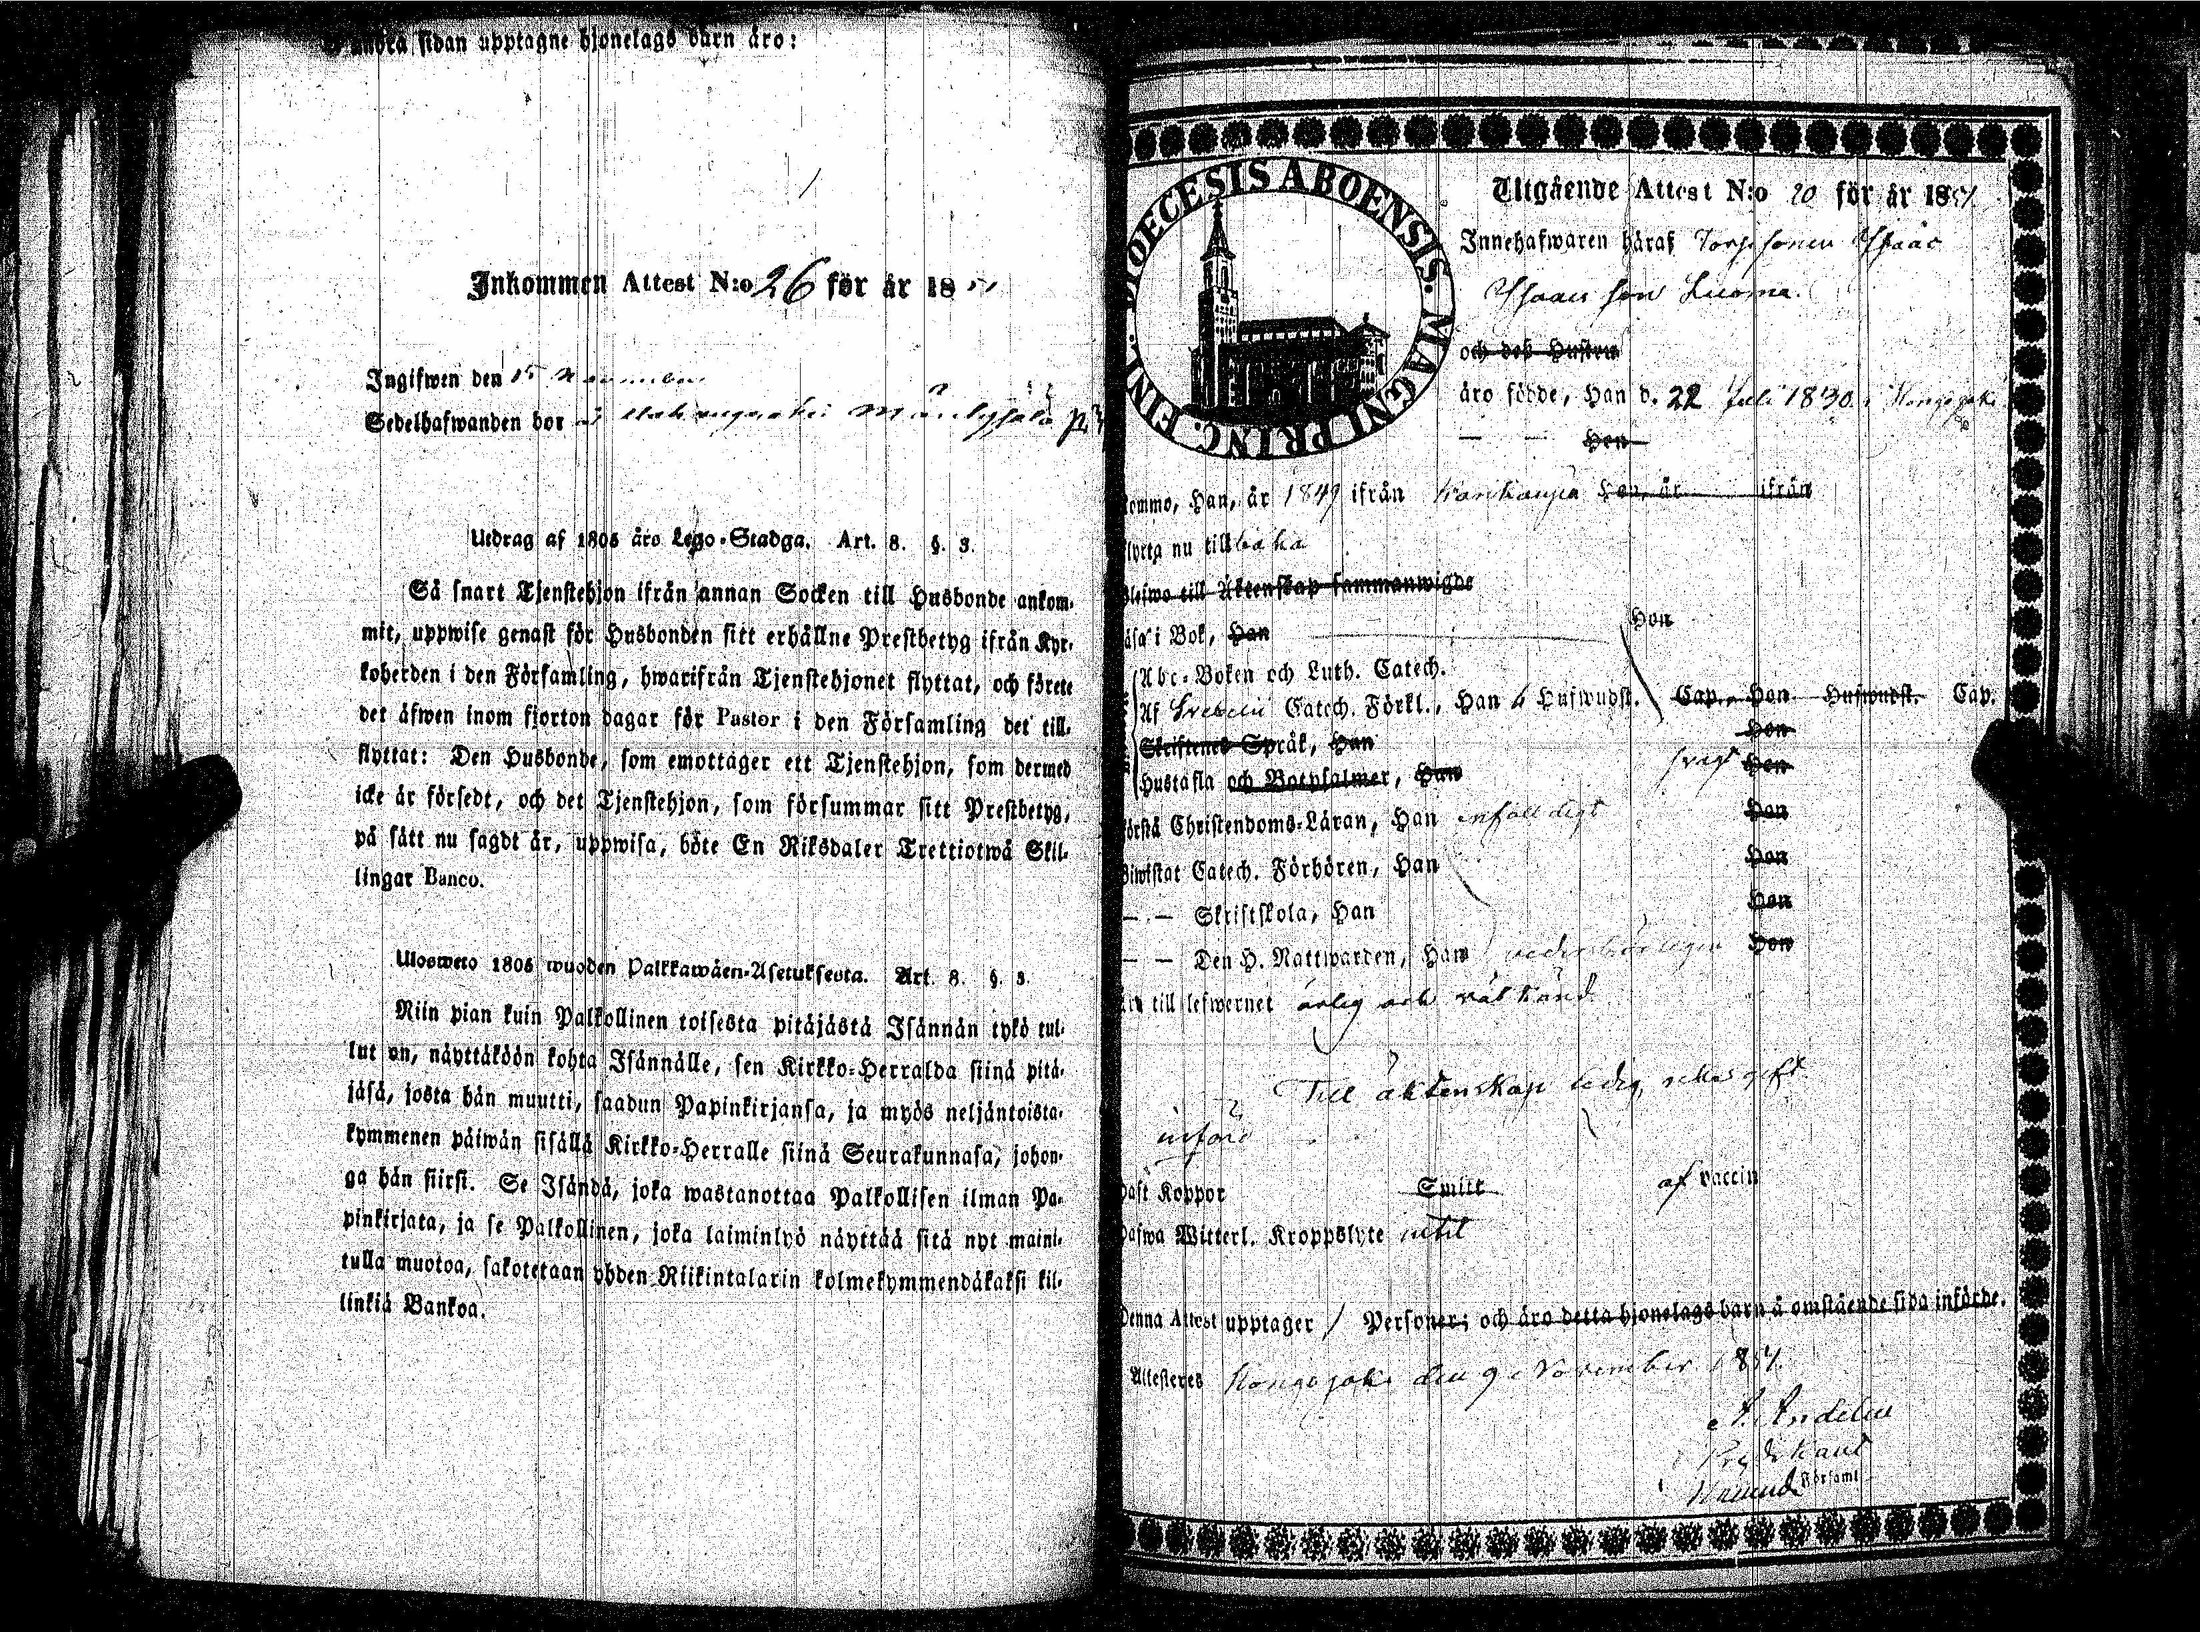 andra sidan upptagne hjonelags barn äro:
Inkommen Attest N:o 26 för år 1851
Ingifwen den 15 November
Sedelhafwanden bor
Utdrag af 1805 års Lego-Stadga. Art. 8. §. 3.
Så snart Tjenstehjon ifrån annan Socken till Husbonde ankom-
mit, uppwise genast för Husbonden sitt erhållne Prestbetyg ifrån Kyr-
koherden i den Församling, hwarifrån Tjenstehjonet flyttat, och förete
det äfwen inom fjorton dagar för Pastor i den Församling det till-
flyttat: Den Husbonde, som emottager ett Tjenstehjon, som dermed
icke är försedt, och det Tjenstehjon, som försummar sitt Prestbetyg,
på sätt nu sagdt är, uppwisa, böte En Riksdaler Trettiotwå Skil-
lingar Banco.
Ulosweto 1805 wuoden Palkkawäen-Asetuksesta. Art. 8. §. 3.
Niin pian kuin Palkollinen toisesta pitäjästä Isännän tykö tul-
lut on, näyttäköön kohta Isännälle, sen Kirkko-Herralda siinä pitä-
jäsä, josta hän muutti, saadun Papinkirjansa, ja myös neljäntoista-
kymmenen päiwän sisällä Kirkko-Herralle siinä Seurakunnasa, johon-
ga hän siirsi. Se Isändä, joka wastanottaa Palkollisen ilman Pa-
pinkirjata, ja se Palkollinen, joka laiminlyö näyttää sitä nyt maini-
tulla muotoa, sakotetaan yhden Riikintalarin kolmekymmendäkaksi kil-
linkiä Bankoa.
DIOECESIS ABOENSIS. MAGNI PRINC. FINL.
Utgående Attest N:o 20 för år 1851.
Innehafwaren häraf Isaac
Isaacs son Luoma.
och deß Hustru
äro födde, Han d. 22 Juli 1830 i Hongojoki
— — Hon
kommo, Han, år 1849 ifrån Hon, år ifrån
flytta nu tillbaka
Blefwo till Äktenskap sammanwigde
läsa i Bok, Han Hon
Abc-Boken och Luth. Catech.
Af Svebelii Catech. Förkl., Han 4 Hufwudst. Cap., Hon Hufwudst. Cap.
Skriftenes Språk, Han Hon
Hustafla och Botpsalmer, Han Hon
förstå Christendoms-Läran, Han enfalldigt Hon
Biwistat Catech. Förhören, Han Hon
— — Skriftskola, Han Hon
— — Den H. Nattwarden, Han vederbörligen Hon
Äro till lefwernet ärlig och väl känd
Till äktenskap ledig, sedes gift
införd
Haft Koppor Smitt af vaccin
Hafwa Witterl. Kroppslyte intet
Denna Attest upptager 1 Personer; och äro detta hjonelags barn å omstående sida införde.
Attesteres Hongojoki den 9 November 1851.
A. Andelin
Predikant
Församl.